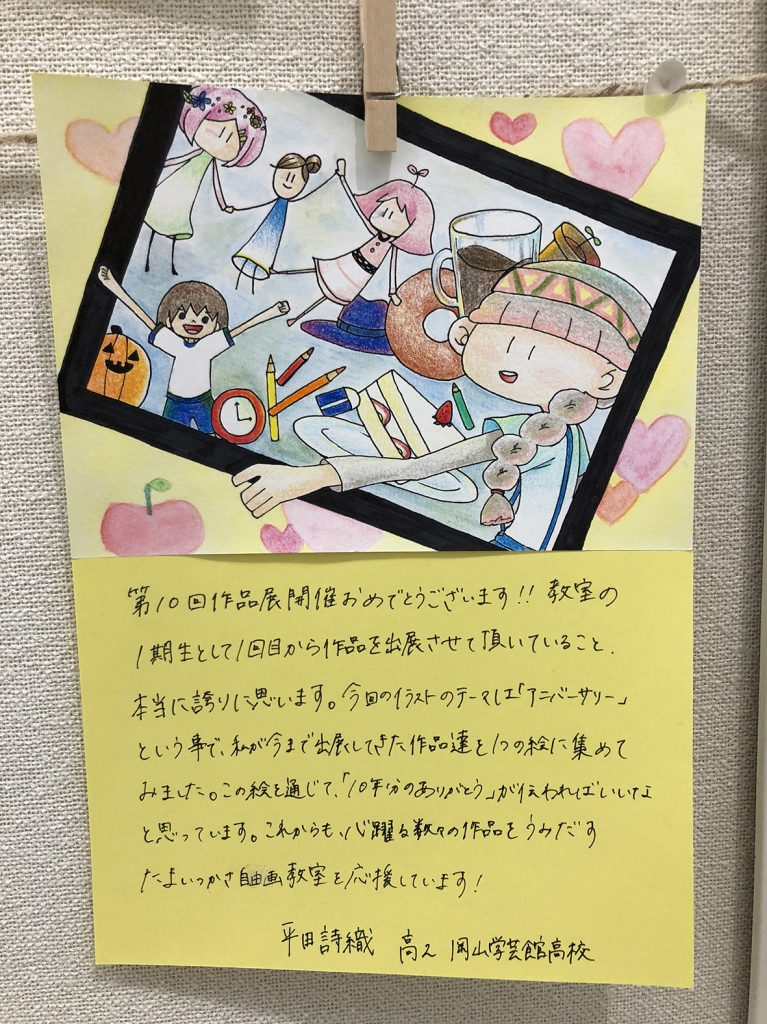 第10回作品展開催おめでとうございます!! 教室の
1期生として1回目から作品を出展させて頂いていること、
本当に誇りに思います。今回のイラストのテーマは「アニバーサリー」
という事で、私が今まで出展してきた作品達を1つの絵に集めて
みました。この絵を通じて、「10年分のありがとう」が伝わればいいな
と思っています。これからも、心躍る数々の作品をうみだす
たまいつかさ自由画教室を応援しています!
平田詩織 高2 岡山学芸館高校